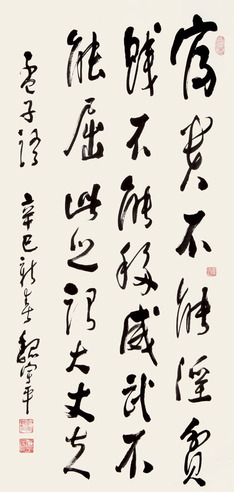 富貴不能淫貧
賤不能移威武不
能屈此之謂大丈夫
孟子語 辛巳新春 魏宇平